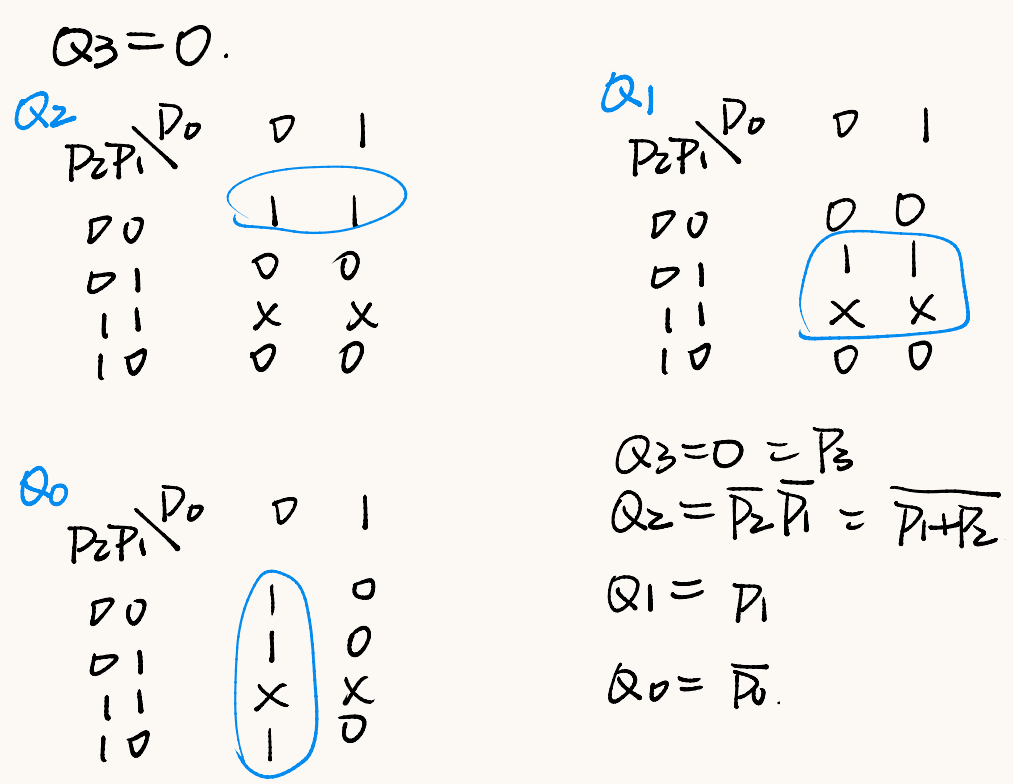 Q3=0.
Q2
P0
P2P1
0 1
00 1 1
01 0 0
11 X X
10 0 0
Q1
P0
P2P1
0 1
00 0 0
01 1 1
11 X X
10 0 0
Q0
P0
P2P1
0 1
00 1 0
01 1 0
11 X X
10 1 0
Q3=0=P̅3
Q2=P̅2P̅1=\overline{P1+P2}
Q1=P1
Q0=P̅0.